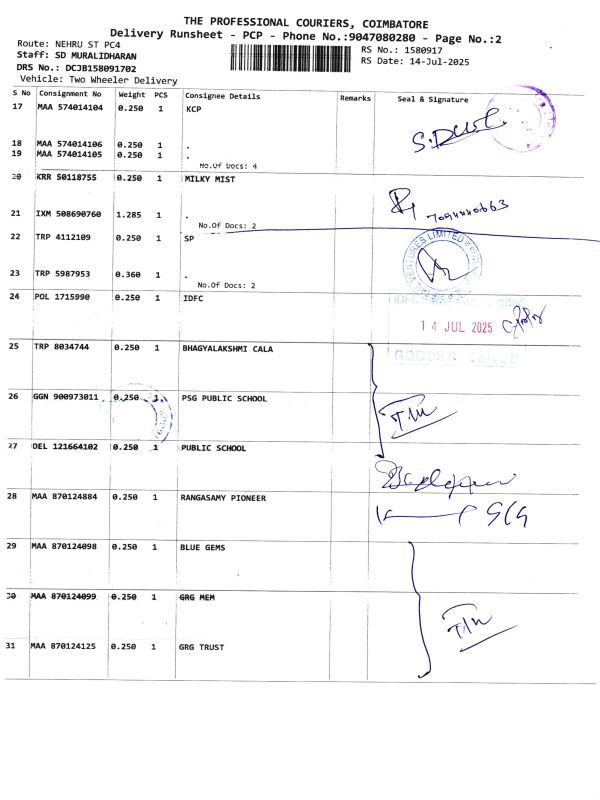 THE PROFESSIONAL COURIERS, COIMBATORE
Delivery Runsheet - PCP - Phone No.:9047080280 - Page No.:2
Route: NEHRU ST PC4
RS No.: 1580917
Staff: SD MURALIDHARAN
RS Date: 14-Jul-2025
DRS No.: DCJB158091702
Vehicle: Two Wheeler Delivery
S No Consignment No Weight PCS Consignee Details Remarks Seal & Signature
17 MAA 574014104 0.250 1 KCP
18 MAA 574014106 0.250 1 .
19 MAA 574014105 0.250 1 .
No.Of Docs: 4
20 KRR 50118755 0.250 1 MILKY MIST
21 IXM 508690760 1.285 1 .
No.Of Docs: 2
22 TRP 4112109 0.250 1 SP
VENTURES LIMITED
23 TRP 5987953 0.360 1 .
No.Of Docs: 2
24 POL 1715990 0.250 1 IDFC
IDFC
14 JUL 2025
GOODS RECEIVED
25 TRP 8034744 0.250 1 BHAGYALAKSHMI CALA
26 GGN 900973011 0.250 1 PSG PUBLIC SCHOOL
27 DEL 121664102 0.250 1 PUBLIC SCHOOL
28 MAA 870124884 0.250 1 RANGASAMY PIONEER
29 MAA 870124098 0.250 1 BLUE GEMS
30 MAA 870124099 0.250 1 GRG MEM
31 MAA 870124125 0.250 1 GRG TRUST